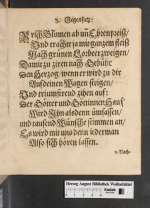 3. Gegensatz:
Brich Blumen ab um Ehrenpreiß/
Und trachte zu mit ganzem fleiß
Nach grünen Lorbeerzweigen/
Damit zu zieren nach Gebühr
Den Herzog/wenn er wird zu dir
Auf deinen Wagen steigen/
Und triumfirend ziehen auf:
Der Götter und Göttinnen Hauf
Wird Ihn alsdenn umfassen/
und tausend Wünsche stimmen an/
Es wird mit uns denn iederman
Also sich hören lassen.
Herzog August Bibliothek Wolfenbüttel